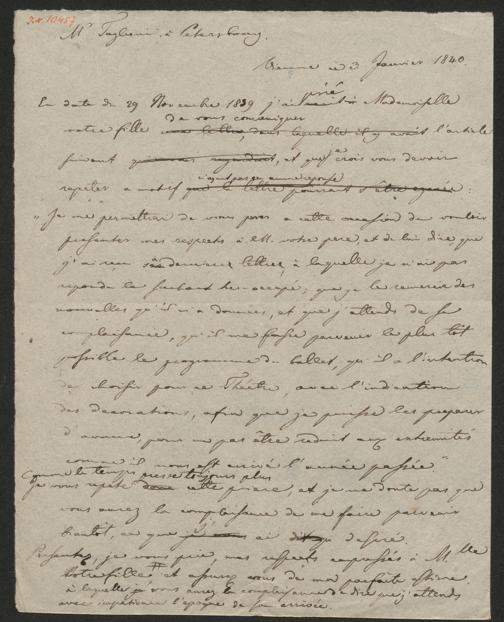 I.N. 10457
Mr Taglioni, à Petersbourg.
Vienne ce 3 Janvier 1840.
prié
En date du 29 Novembre 1839 j'ai Mademoiselle
de vous communiquer
votre fille une lettre dans laquelle il y avait l'article
suivant , et que je crois vous devoir
n'ayant pas eu aucune réponse
repeter a motif que la lettre pourrait s'être egarée :
„ Je me permettrai de vous prier a cette occasion de vouloir
presenter mes respects à M. votre pere, et de lui dire que
j'ai reçu dernieres lettres, à laquelle je n'ai pas
repondu le sachant très-occupé ; que je le remercie des
nouvelles qu'il m'a données, et que j'attends de sa
complaisance, qu'il me fasse parvenir le plus tôt
possible le programme du ballet, qu'il a l'intention
de choisir pour ce Théatre, avec l'indication
des decorations, afin que je puisse les preparer
d'avance, pour ne pas être reduit aux extremités
comme il nous est arrivé l'année passée "
Comme le temps presse toujours plus
je vous repete cette priere, et je ne doute pas que
vous aurez la complaisance de me faire parvenir
bientôt, ce que j' ai desiré.
Presentez, je vous prie, mes respects empressés à M.lle
votre fille et assurez vous de ma parfaite estime.
à laquelle vous aurez la complaisance de dire que j'attends
avec impatience l'époque de son arrivée.